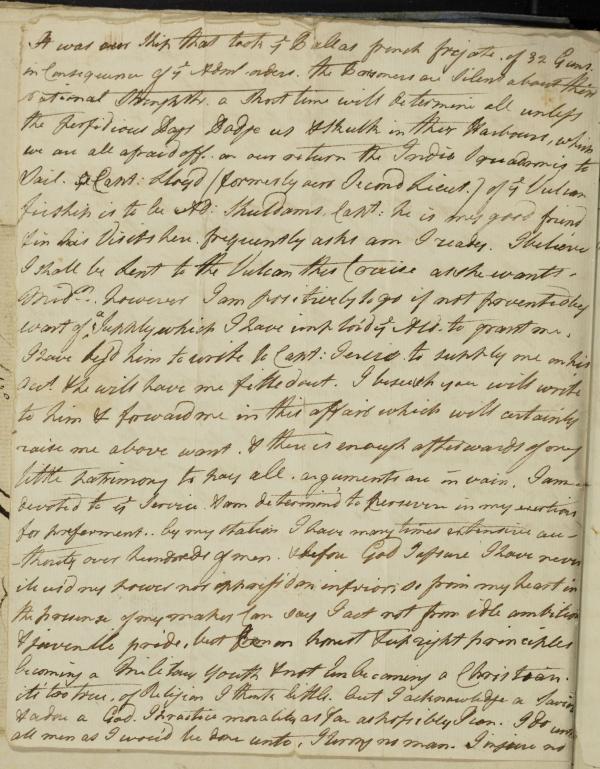 It was our Ship that took ye Pallas french frigate. of 32 Guns.
in Consequence of ye Adml orders. the Commers are Silent about their
national Strength. a short time will determine all unless
the perfidious Dogs Dodge us & skulk in their Harbours, which
we are all afraid off. on our return the India Squadron is to
Sail. Capt: Lloyd (formerly our Second Lieut.) of ye Vulcan
fireship is to be Ad: Shuldams. Capt: he is my good friend
& in his Visits here. frequently asks am I ready. I believe
I shall be sent to the Vulcan this Cruise as she wants
Midn. however I am positively to go if not prevented by
want of a Supply which I have implor'd ye Ad. to grant me.
I have beg'd him to write to Capt: Jervis to supply me on his
Acct. & he will have me fitted out. I beseech you will write
to him & forward me in this affair which will certainly
raise me above want. & there is enough afterwards of my
little patrimony to pay all. arguments are in vain. I am
devoted to ye Service & am determined to persevere in my exertions
for preferment.. by my station I have many times extensive au-
-thority over hundreds of men. & before God I assure I have never
my power nor oppress'd an inferior, so from my heart in
the presence of my maker Can say I act not from idle ambition
& juvenile pride, but from honest & upright principles
becoming a Military Youth & not Unbecoming a Christian.
its too true. of Religion I think little. but I acknowledge a Savior
& adore a God. I practice morality as far as possibly I can. I do unto
all men as I wou'd be done unto, I wrong no man. I injure no